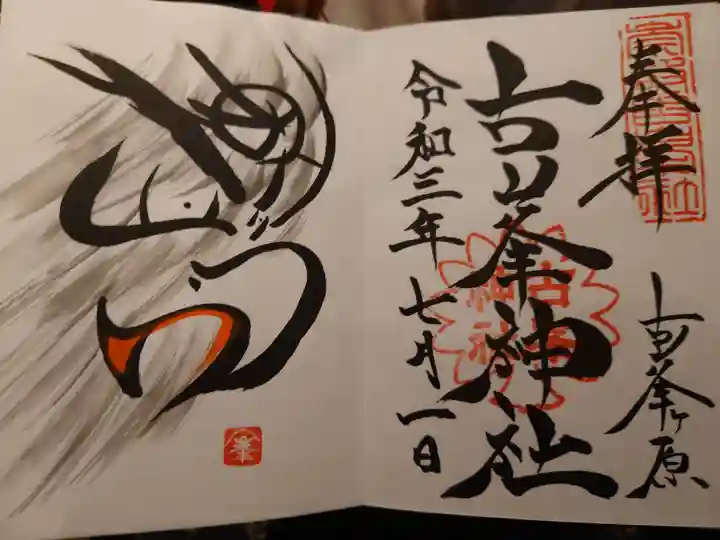 奉拝
古峯ヶ原
古峯神社
令和三年七月一日
峯